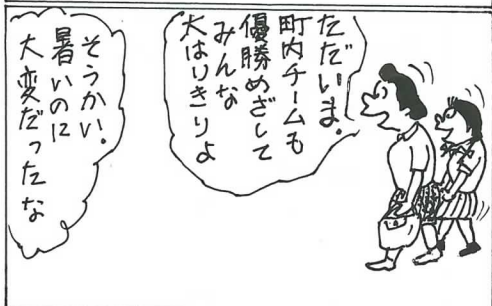 ただいま。
町内チームも
優勝めざして
みんな
大はりきりよ
そうかい。
暑いのに
大変だったな